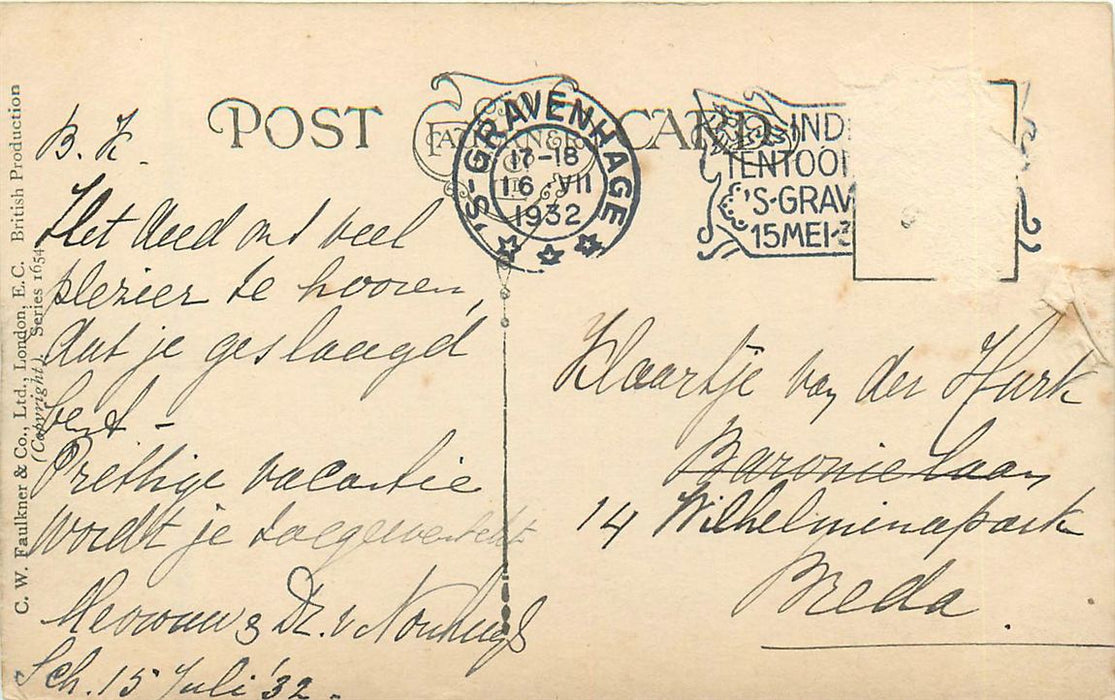 POST CARD
C. W. Faulkner & Co., Ltd., London, E.C. British Production
(Copyright) Series 1654
'S-GRAVENHAGE
17-18
16 VII
1932
IND
TENTOO
'S-GRAV
15 MEI-3
B. K.
Het deed ons veel
plezier te hooren,
dat je geslaagd
bent -
Prettige vacantie
wordt je toegewenscht
Mevrouw &amp; Dr. v
Sch. 15 Juli '32.
Klaartje van der Hurk
Baronielaan
14 Wilhelminapark
Breda.